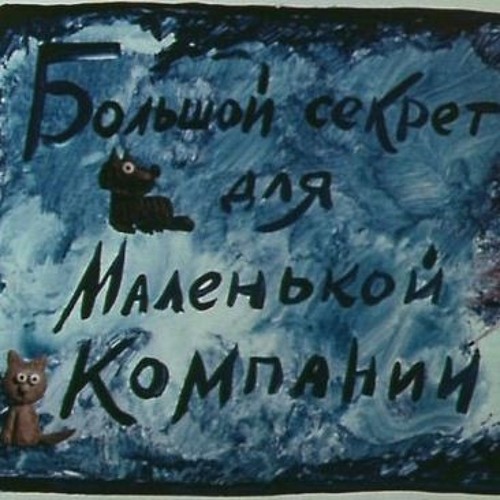 Большой секрет
для
Маленькой
Компании